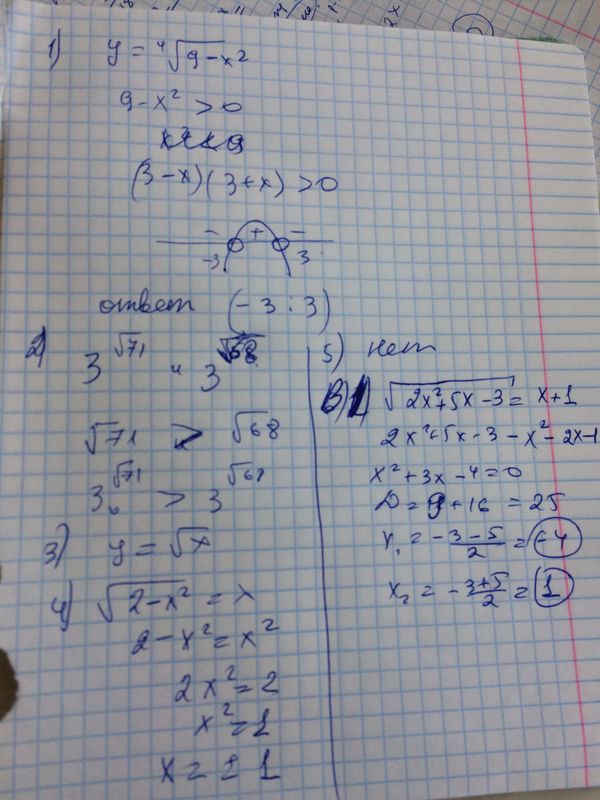 1) y = ⁴√9-x²
9-x² > 0
(3-x)(3+x) > 0
- + -
-3 3
ответ (-3 ; 3)
2) 3^√71 и 3^√68
√71 > √68
3^√71 > 3^√68
3) y = √x
4) √2-x² = x
2-x² = x²
2x² = 2
x² = 1
x = ± 1
5) нет
B) 1) √2x²+5x-3 = x+1
2x²+5x-3-x²-2x-1
x²+3x-4=0
D=9+16 = 25
x₁ = -3-5/2 = -4
x₂ = -3+5/2 = 1